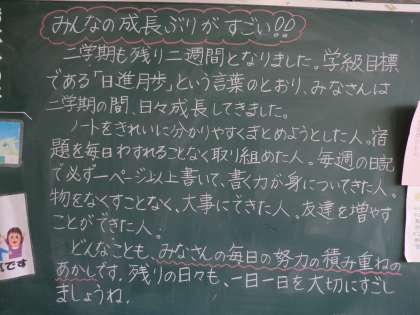 みんなの成長ぶりが、すごい!!
二学期も残り二週間となりました。学級目標
である「日進月歩」という言葉のとおり、みなさんは
二学期の間、日々成長してきました。
ノートをきれいに分かりやすくまとめようとした人。宿
題を毎日わすれることなく取り組めた人。毎週の日記
で必ず一ページ以上書いて、書く力が身についてきた人。
物をなくすことなく、大事にできた人、友達を増やす
ことができた人。
どんなことも、みなさんの毎日の努力の積み重ねの
あかしです。残りの日々も、一日一日を大切にすごし
ましょうね。
です